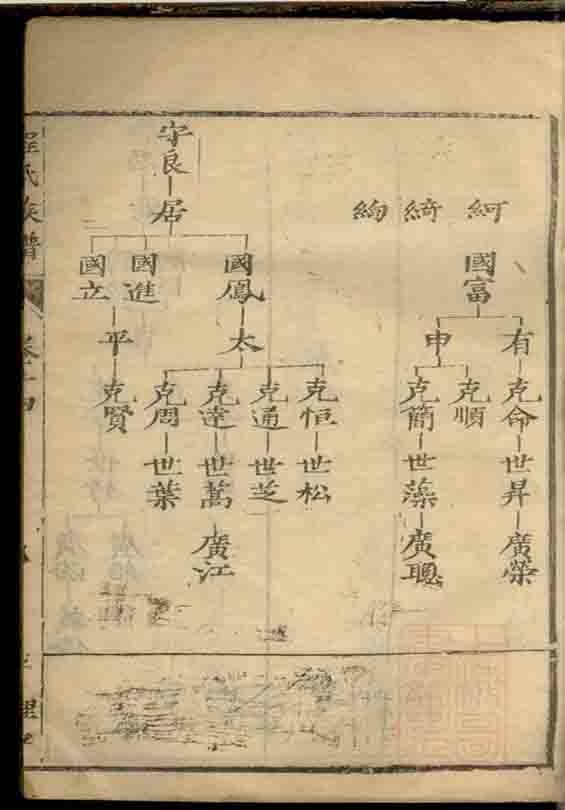 紉 綺 絢
國富
有 申
克命 克順 克簡
世昇 世藻
廣榮 廣聰
守良
居
國鳳 國進 國立
太 平
克恒 克通 克達 克周 克賢
世松 世芝 世萬 世葉
廣江
氏族譜